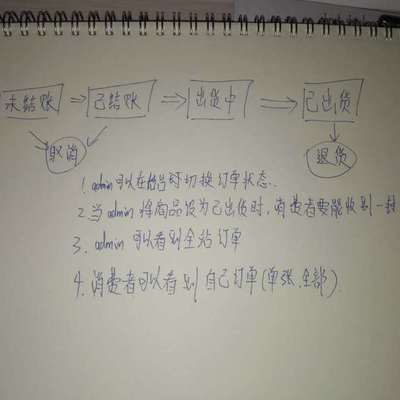 未结账 ⇒ 已结账 ⇒ 出货中 ⇒ 已出货
取消
退货
1. admin可以在后台 切换订单状态.
2. 当admin将商品设为已出货时,消费者要能收到一封
3. admin可以看到全站订单
4. 消费者可以看到自己订单(单张.全部)